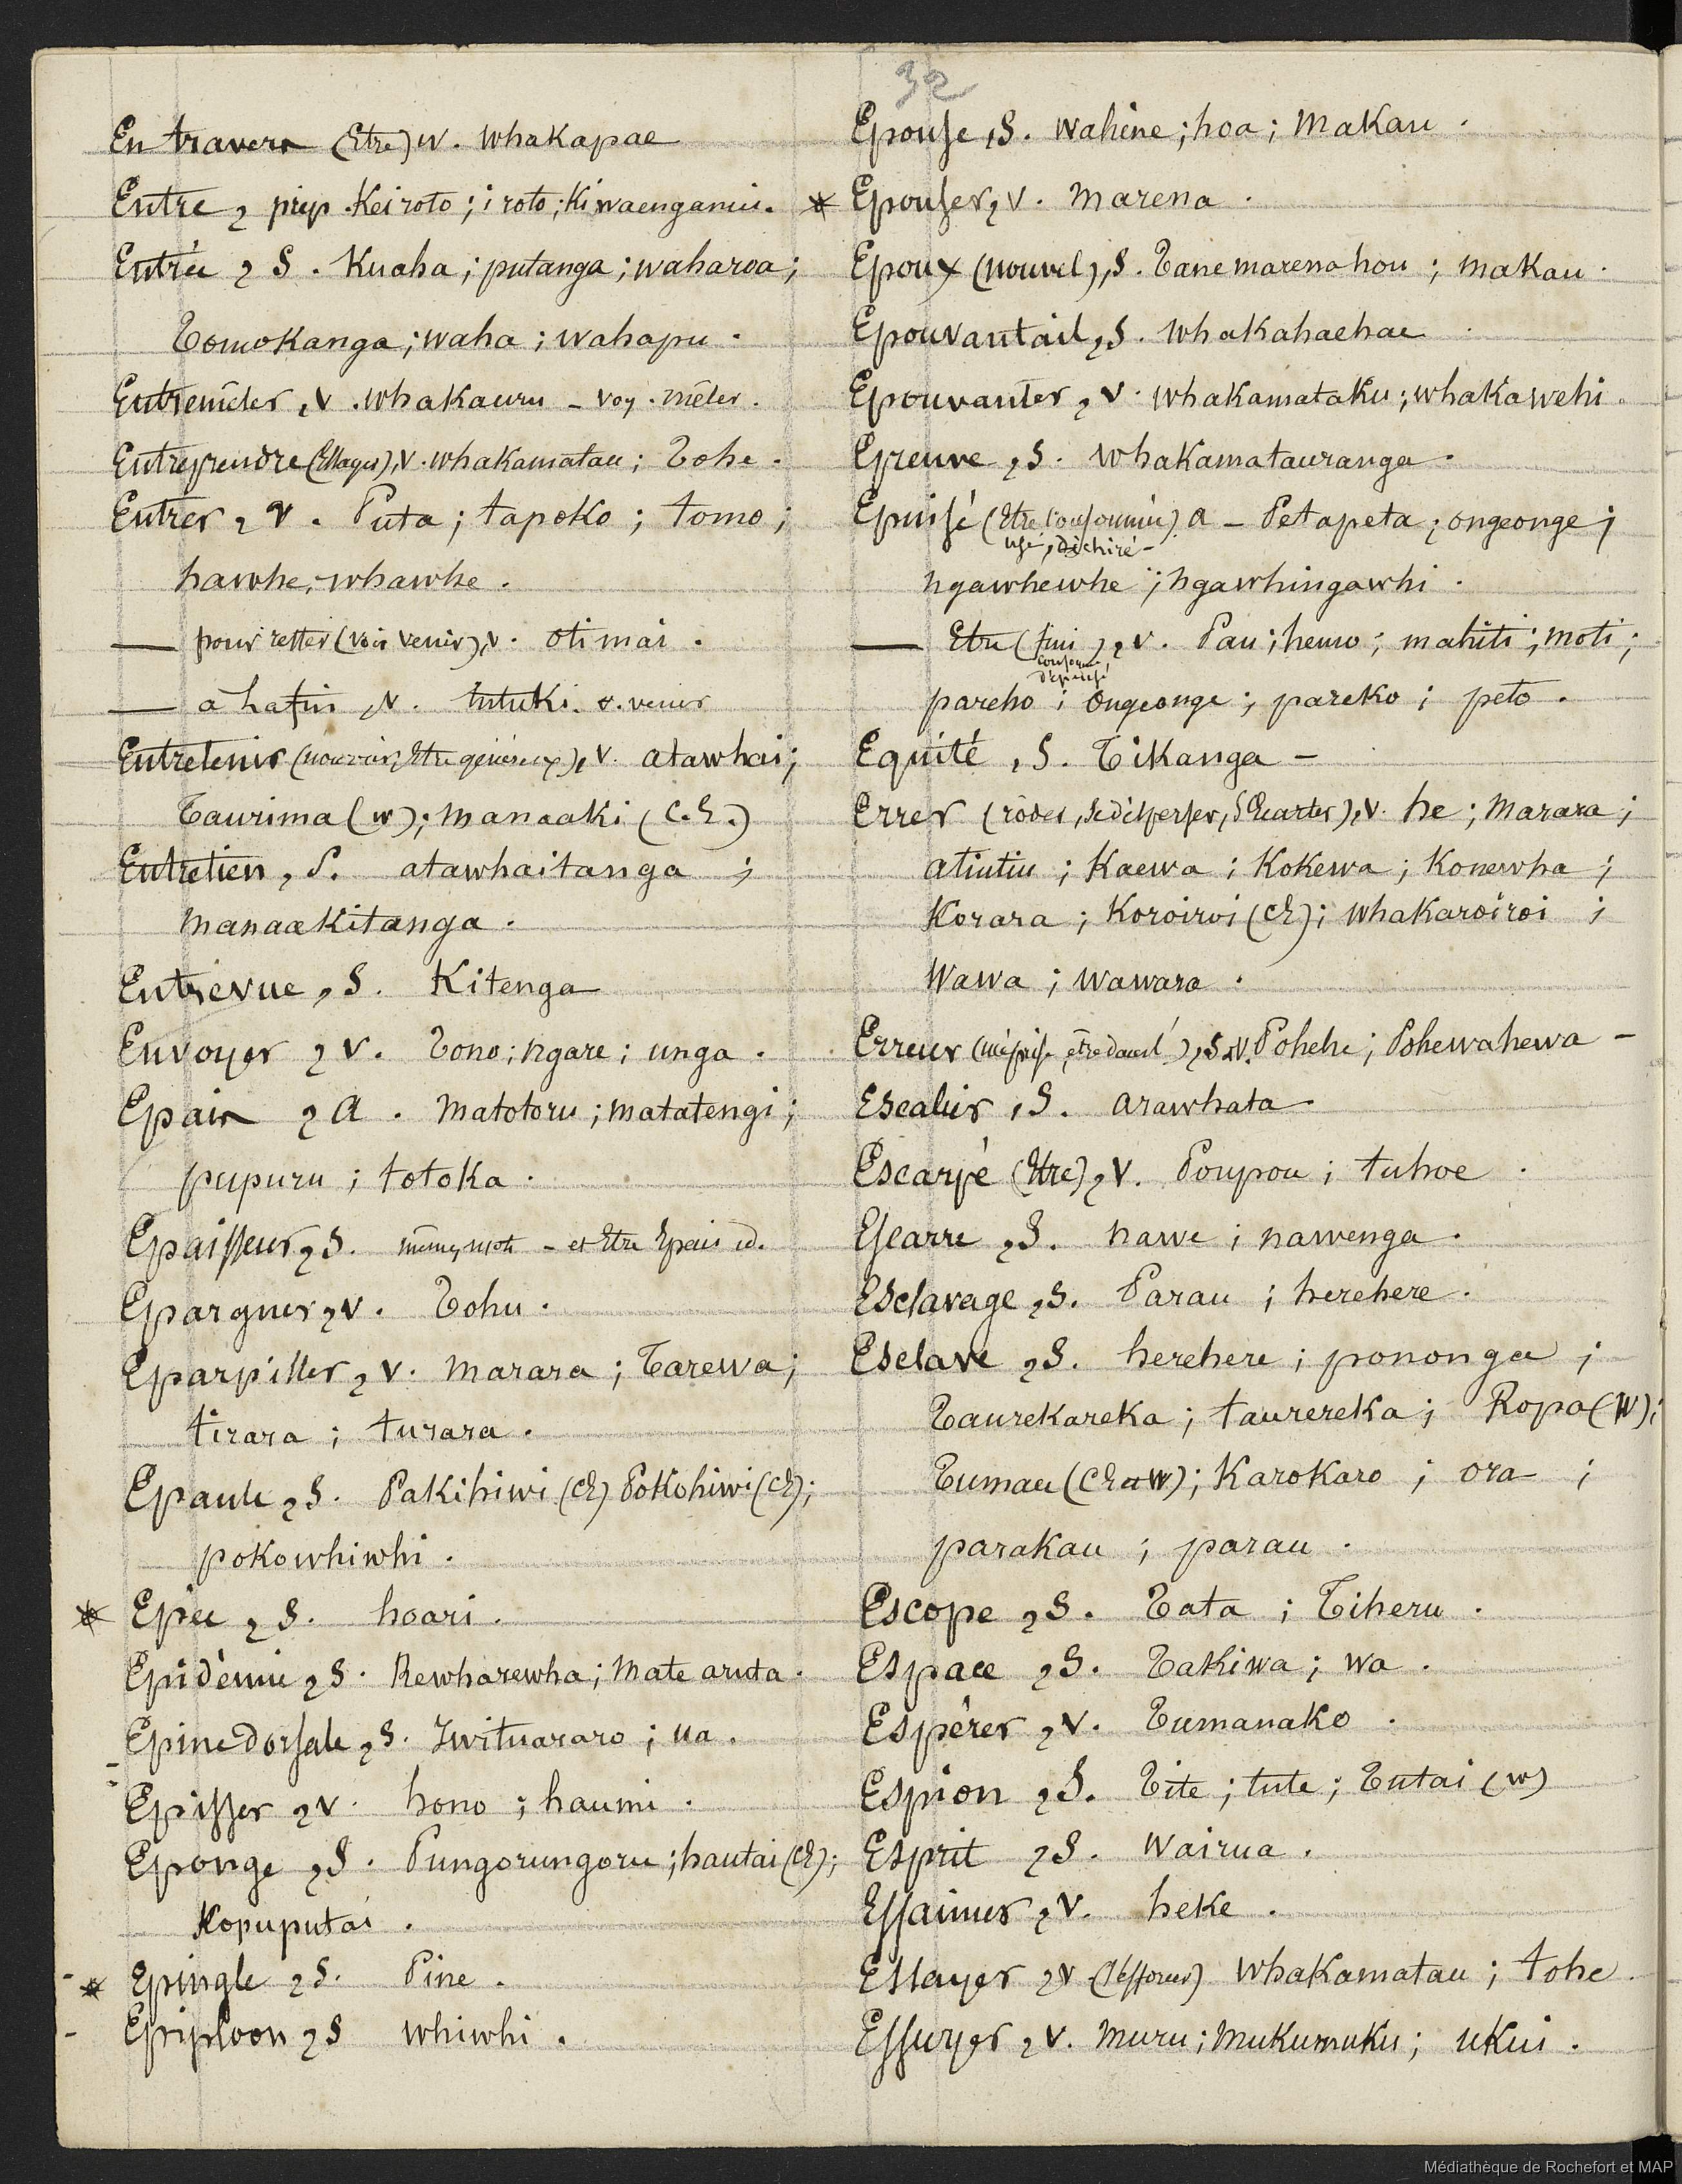 32
En travers (Etre) v. whakapae
Entre, prép. Kei roto; i roto; Ki waenganui.
Entrée, S. Kuaha; putanga; waharoa;
Tomokanga; waha; wahapu.
Entremêler, v. whakauru - voy. mêler.
Entreprendre (Essayer), v. whakamatau; Tohe.
Entrer, v. Puta; tapoko; tomo;
hawhe; whawhe.
— pour rester (voir venir), v. oti mai.
— à la fin, v. tutuki. v. venir
Entretenir (nourrir, Etre généreux), v. atawhai;
Taurima (w); manaaki (C.E.)
Entretien, S. atawhaitanga;
manaakitanga.
Entrevue, S. Kitenga
Envoyer, v. Tono; ngare; unga.
Epais, a. matotoru; matatengi;
pupuru; totoka.
Epaisseur, S. mêmes mots - et Etre Epais id.
Epargner, v. Tohu.
Eparpiller, v. marara; Tarewa;
tirara; turara.
Epaule, S. Pakihiwi (CE) Pokohiwi (CE);
pokowhiwhi.
* Epée, S. hoari.
Epidémie, S. Rewharewha; mate aruta.
Epine dorsale, S. Iwituararo; ua.
Episser, v. hono; haumi.
Eponge, S. Pungorungoru; hautai (CE);
Kopuputai.
* Epingle, S. Pine.
Epiploon, S whiwhi.
Epouse, S. wahine; hoa; makau.
* Epouser, v. marena.
Epoux (nouvel), S. Tane marena hou; makau.
Epouvantail, S. whakahaehae
Epouvanter, v. whakamataku; whakawehi.
Epreuve, S. whakamatauranga.
Epuisé (Etre consommé) a - Petapeta; ongeonge;
usé, déchiré -
ngawhewhe; ngawhingawhi.
— Etre (fini), v. Pau; hemo; mahiti; moti;
consom. dépensé
pareho; ongeonge; pareko; peto.
Equité, S. Tikanga -
Errer (rôder, se disperser, s'Ecarter), v. he; marara;
atiutiu; Kaewa; Kokewa; Konewha;
Korara; Koroiroi (CE); whakaroiroi;
wawa; wawara.
Erreur (méprise, être dans l'), S. v. Pohehe; Pohewahewa -
Escalier, S. arawhata.
Escarpé (Etre), v. Poupou; tuhoe.
Escarre, S. nawe; nawenga.
Esclavage, S. Parau; herehere.
Esclave, S. herehere; pononga;
Taurekareka; taurereka; Ropa (W);
Tumau (CE et W); Karokaro; ora;
parakau; parau.
Escope, S. Tata; Tiheru.
Espace, S. Takiwa; wa.
Espérer, v. Tumanako.
Espion, S. Tite; tute; Tutai (w)
Esprit, S. wairua.
Essaimer, v. heke.
Essayer, v. (s'efforcer) whakamatau; tohe.
Essuyer, v. muru; mukumuku; ukui.
Médiathèque de Rochefort et MAP